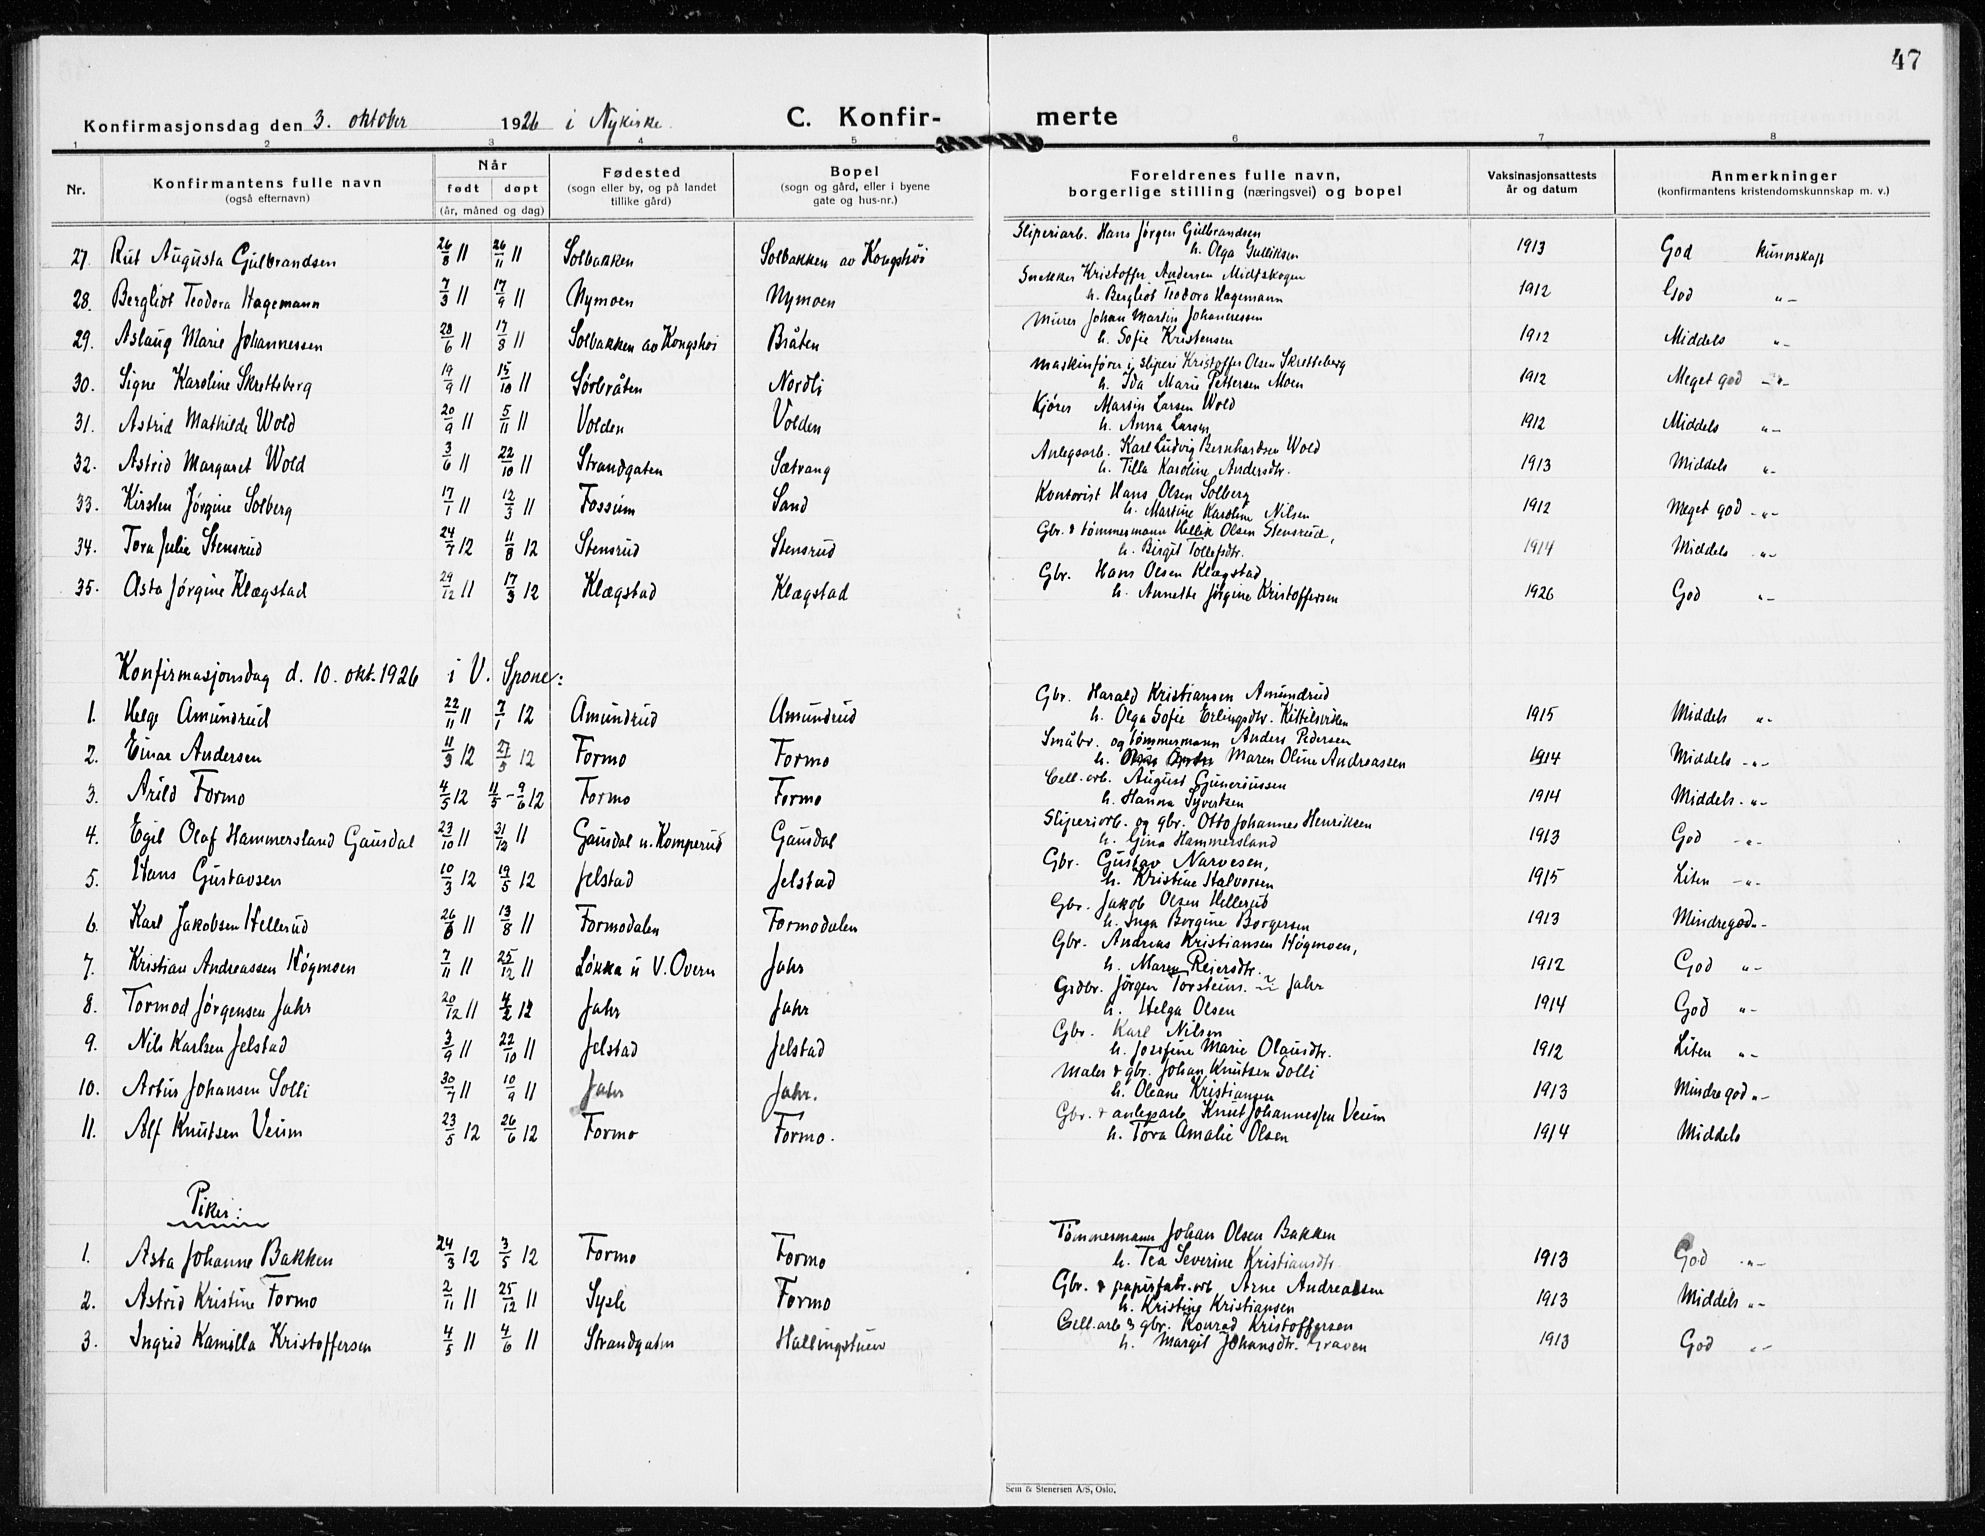 47
Konfirmasjonsdag den 3. oktober 1926 i Nykirke. C. Konfir- merte
1 2 3 4 5 6 7 8
Nr. Konfirmantens fulle navn (også efternavn) Når født døpt (år, måned og dag) Fødested (sogn eller by, og på landet tillike gård) Bopel (sogn og gård, eller i byene gate og hus-nr.) Foreldrenes fulle navn, borgerlige stilling (næringsvei) og bopel Vaksinasjonsattests år og datum Anmerkninger (konfirmantens kristendomskunnskap m. v.)
Sliperiarb. Hans Jørgen Gulbrandsen
27. Rut Augusta Gulbrandsen 26/8 11 26/11 11 Solbakken Solbakken av Kongshøi h. Olga Gulliksen 1913 God kunnskap
Snekker Kristoffer Andersen Midtskogen
28. Bergliot Teodora Hagemann 7/3 11 17/9 11 Nymoen Nymoen h. Bergliot Teodora Hagemann 1912 God "-
Murer Johan Martin Johannessen
29. Aslaug Marie Johannessen 28/6 11 17/9 11 Solbakken av Kongshøi Bråten h. Sofie Kristensen 1912 Middels "-
Maskinfører i sliperi Kristoffer Olsen Skretteberg
30. Signe Karoline Skretteberg 19/9 11 15/10 11 Sørbråten Nordli h. Ida Marie Pettersen Moen 1912 Meget god -"-
Kjører Martin Larsen Wold
31. Astrid Mathilde Wold 20/9 11 5/11 11 Volden Volden h. Anna Larsen 1912 Middels "-
Anlegsarb. Karl Ludvig Bernhardsen Wold
32. Astrid Margaret Wold 3/6 11 22/10 11 Strandgaten Sætrang h. Tilla Karoline Andersdtr. 1913 Middels "-
Kontorist Hans Olsen Solberg
33. Kirsten Jørgine Solberg 17/1 11 12/3 11 Fossum Sand h. Martine Karoline Nilsen 1912 Meget god -"-
Gbr. & tømmermann Hellik Olsen Stensrud,
34. Tora Julie Stensrud 24/7 12 11/8 12 Stensrud Stensrud h. Birgit Tollefsdtr. 1914 Middels "-
Gbr. Hans Olsen Klægstad
35. Asta Jørgine Klægstad 29/12 11 17/3 12 Klægstad Klægstad h. Annette Jørgine Kristoffersen 1926 God "-
Konfirmasjonsdag d. 10. okt. 1926 i V. Spone:
Gbr. Harald Kristiansen Amundrud
1. Helge Amundrud 22/11 11 7/1 12 Amundrud Amundrud h. Olga Sofie Erlingsdtr. Kittilsviken 1915 Middels "-
Småbr. og tømmermann Anders Pedersen
2. Einar Andersen 11/3 12 27/5 12 Formo Formo h. Maren Oline Andreassen 1914 Middels -"-
Cell. arb. August Guneriussen
3. Arild Formo 4/5 12 11/5 - 9/6 12 Formo Formo h. Hanna Syvertsen 1914 Middels -"-
Sliperiarb. og gbr. Otto Johannes Henriksen
4. Egil Olaf Hammersland Gausdal 23/10 11 31/12 11 Gausdal u. Komperud Gausdal h. Gina Hammersland 1913 God -"-
Gbr. Gustav Narvesen,
5. Hans Gustavsen 10/3 12 19/5 12 Jelstad Jelstad h. Kristine Halvorsen 1915 Liten -"-
Gbr. Jakob Olsen Hellerud
6. Karl Jakobsen Hellerud 26/6 11 13/8 11 Formodalen Formodalen h. Inga Borgine Borgersen 1913 Mindre god "-
Gbr. Andreas Kristiansen Høgmoen,
7. Kristian Andreassen Høgmoen 7/11 11 25/12 11 Løkka u V. Overn Jahr h. Maren Reiersdtr. 1912 God "-
Grdbr. Jørgen Torsteins. Jahr
8. Tormod Jørgensen Jahr 20/12 11 4/2 12 Jahr Jahr h. Helga Olsen 1914 God "-
Gbr. Karl Nilsen
9. Nils Karlsen Jelstad 3/9 11 22/10 11 Jelstad Jelstad h. Josefine Marie Olausdtr. 1912 Liten "-
Maler & gbr. Johan Knutsen Solli
10. Artur Johansen Solli 30/7 11 10/9 11 Jahr Jahr. h. Oleane Kristiansen 1913 Mindre god "-
Gbr. & anlegsarb. Knut Johannessen Veum
11. Alf Knutsen Veum 23/5 12 26/6 12 Formo Formo. h. Tora Amalie Olsen 1914 Middels
Piker:
Tømmermann Johan Olsen Bakken
1. Asta Johanne Bakken 24/3 12 3/5 12 Formo Formo h. Tea Severine Kristiansdtr. 1913 God "-
Gbr. & papirfabr. arb. Arne Andreassen
2. Astrid Kristine Formo 2/11 11 25/12 11 Sysle Formo h. Kristine Kristiansen 1913 Middels "-
Cell. arb & gbr. Konrad Kristoffersen
3. Ingrid Kamilla Kristoffersen 4/5 11 4/6 11 Strandgaten Hallingstuen h. Margit Johansdtr. Graven 1913 God "-
Sem & Stenersen A/S, Oslo.